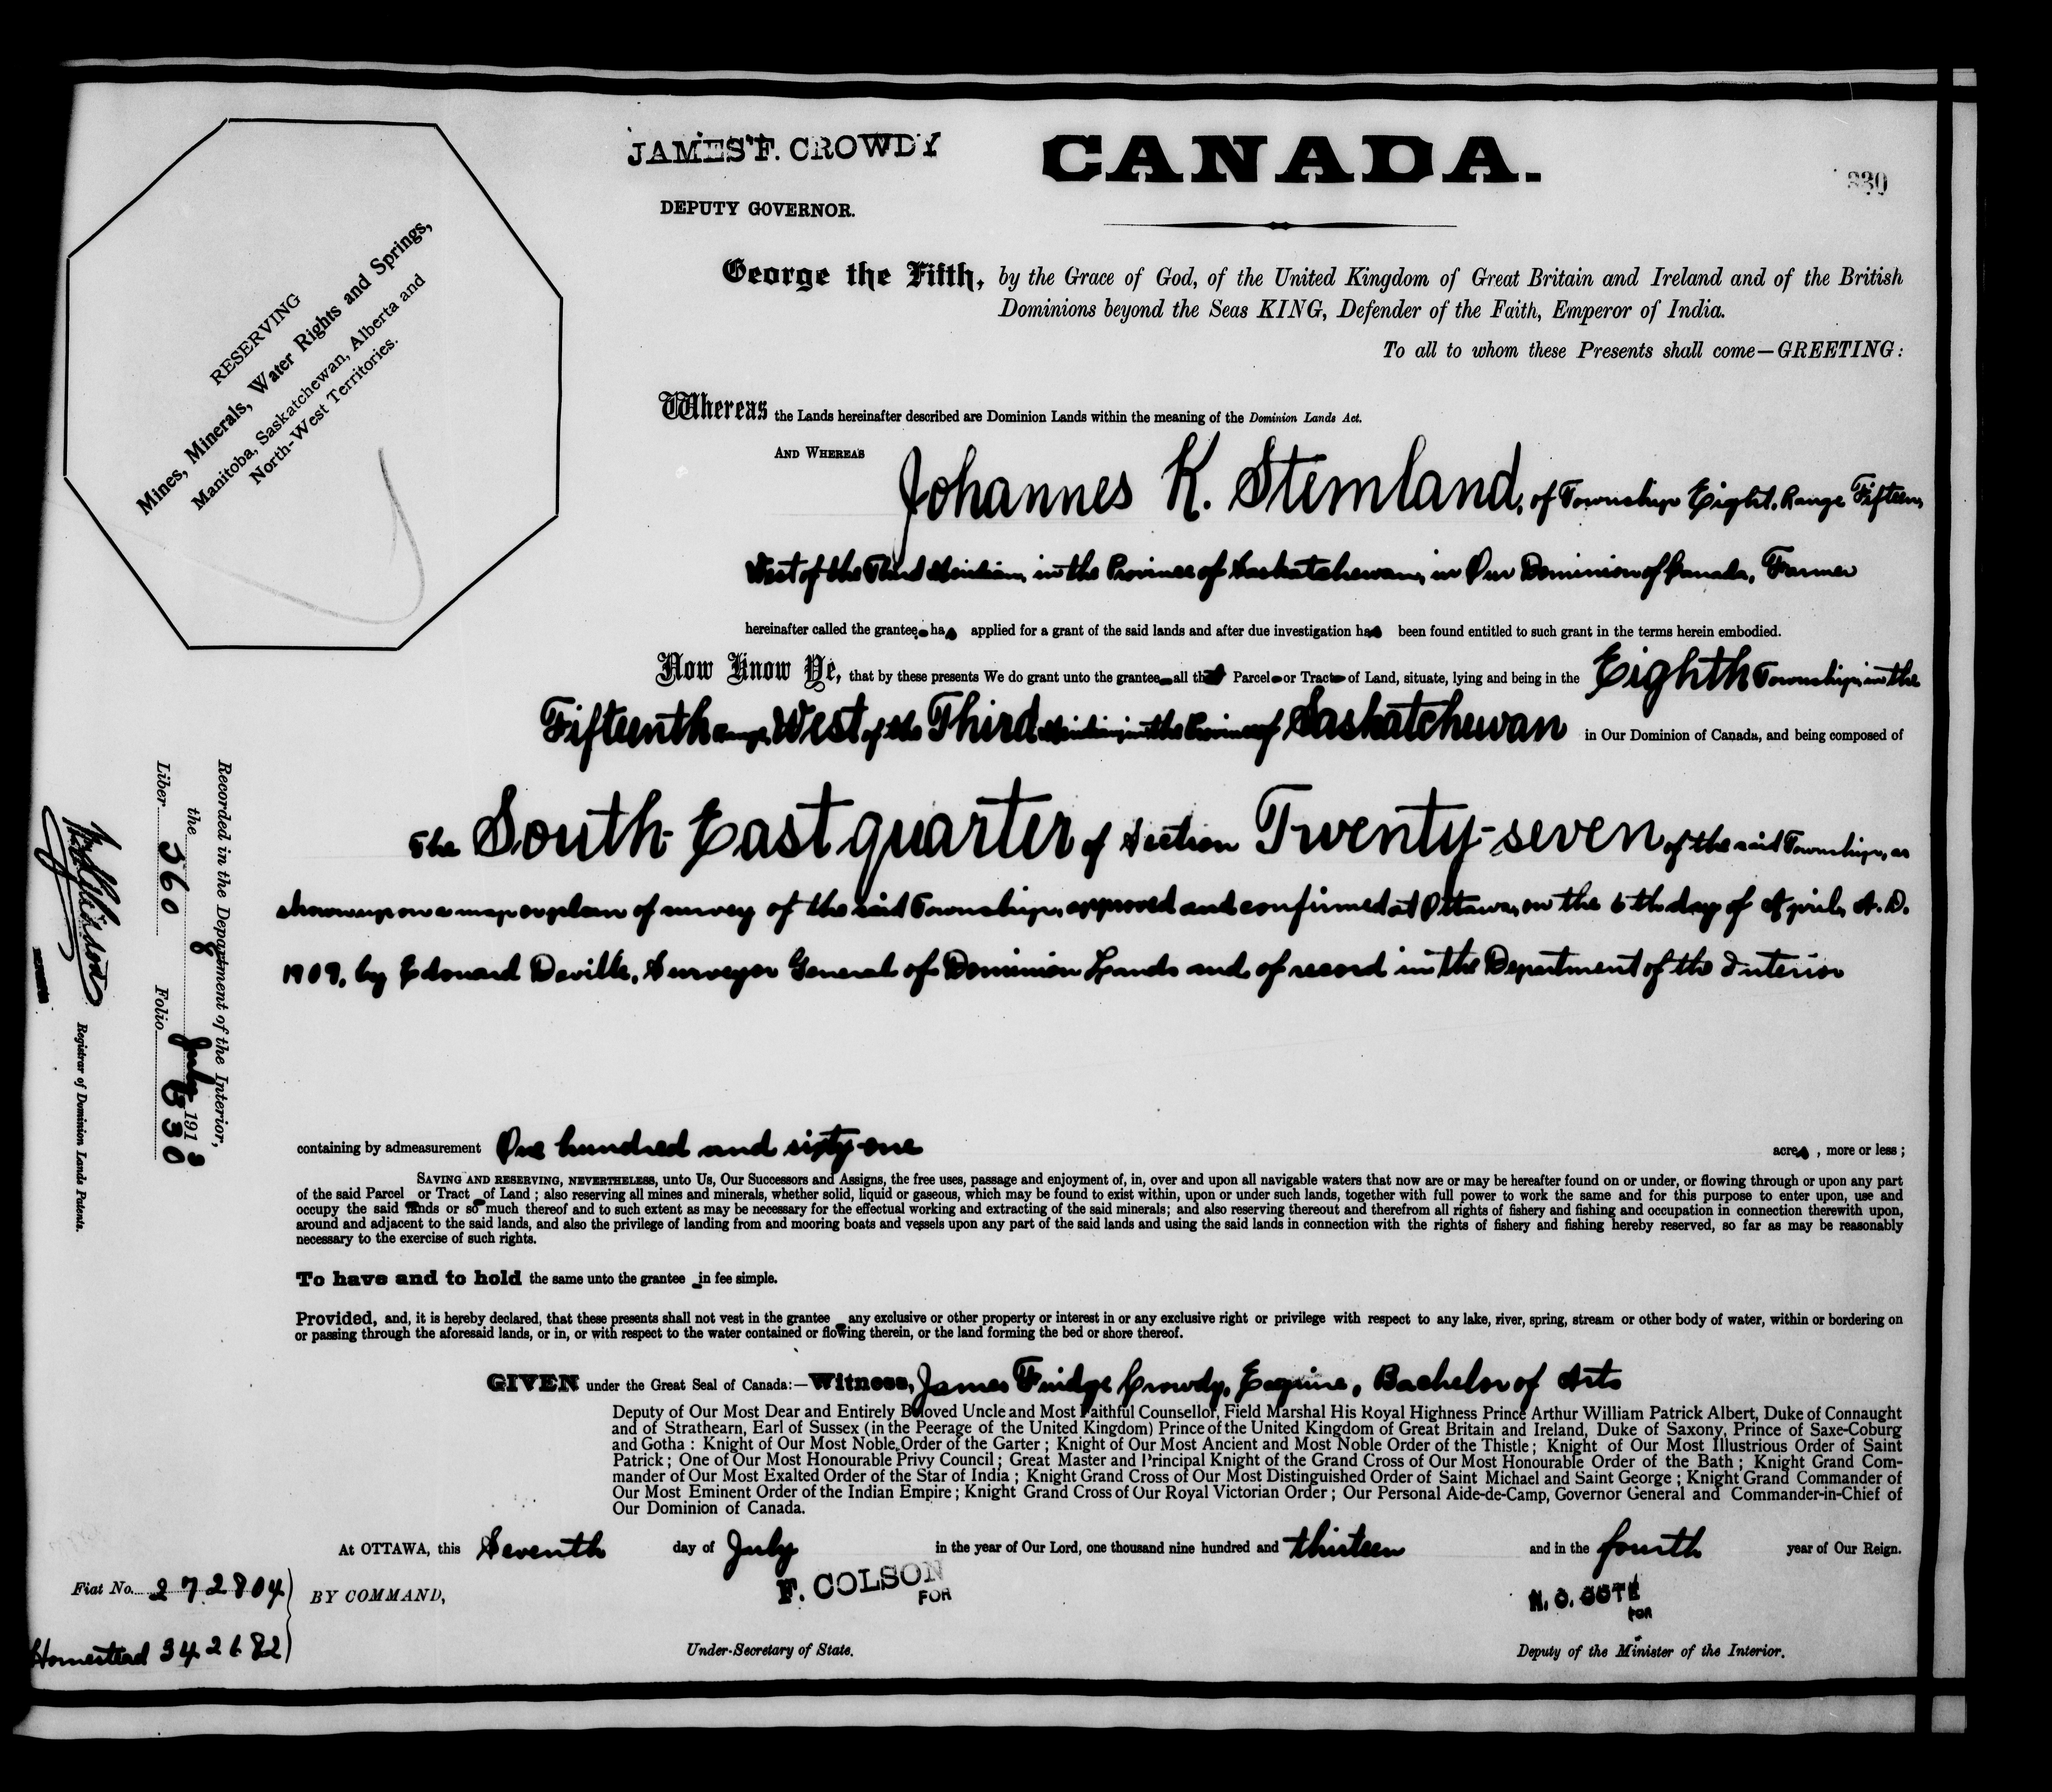 JAMES F. CROWDY
DEPUTY GOVERNOR.
CANADA.
330
RESERVING
Mines, Minerals, Water Rights and Springs,
Manitoba, Saskatchewan, Alberta and
North-West Territories.
George the Fifth, by the Grace of God, of the United Kingdom of Great Britain and Ireland and of the British
Dominions beyond the Seas KING, Defender of the Faith, Emperor of India.
To all to whom these Presents shall come—GREETING:
Whereas the Lands hereinafter described are Dominion Lands within the meaning of the Dominion Lands Act.
AND WHEREAS Johannes K. Stemland, of Township Eight, Range Fifteen,
West of the Third Meridian, in the Province of Saskatchewan, in Our Dominion of Canada, Farmer
hereinafter called the grantee, has applied for a grant of the said lands and after due investigation has been found entitled to such grant in the terms herein embodied.
Now Know Ye, that by these presents We do grant unto the grantee all that Parcel or Tract of Land, situate, lying and being in the Eighth Township, in the
Fifteenth Range, West of the Third Meridian, in the Province of Saskatchewan in Our Dominion of Canada, and being composed of
The South East quarter of Section Twenty-seven of the said Township, as
shown upon a map or plan of survey of the said Township, approved and confirmed at Ottawa, on the 6th day of April, A.D.
1909, by Edouard Deville, Surveyor General of Dominion Lands and of record in the Department of the Interior
containing by admeasurement One hundred and sixty-one acres, more or less;
SAVING AND RESERVING, NEVERTHELESS, unto Us, Our Successors and Assigns, the free uses, passage and enjoyment of, in, over and upon all navigable waters that now are or may be hereafter found on or under, or flowing through or upon any part
of the said Parcel or Tract of Land; also reserving all mines and minerals, whether solid, liquid or gaseous, which may be found to exist within, upon or under such lands, together with full power to work the same and for this purpose to enter upon, use and
occupy the said lands or so much thereof and to such extent as may be necessary for the effectual working and extracting of the said minerals; and also reserving thereout and therefrom all rights of fishery and fishing and occupation in connection therewith upon,
around and adjacent to the said lands, and also the privilege of landing from and mooring boats and vessels upon any part of the said lands and using the said lands in connection with the rights of fishery and fishing hereby reserved, so far as may be reasonably
necessary to the exercise of such rights.
To have and to hold the same unto the grantee in fee simple.
Provided, and, it is hereby declared, that these presents shall not vest in the grantee any exclusive or other property or interest in or any exclusive right or privilege with respect to any lake, river, spring, stream or other body of water, within or bordering on
or passing through the aforesaid lands, or in, or with respect to the water contained or flowing therein, or the land forming the bed or shore thereof.
GIVEN under the Great Seal of Canada:—Witness, James Fuidge Crowdy, Esquire, Bachelor of Arts
Deputy of Our Most Dear and Entirely Beloved Uncle and Most Faithful Counsellor, Field Marshal His Royal Highness Prince Arthur William Patrick Albert, Duke of Connaught
and of Strathearn, Earl of Sussex (in the Peerage of the United Kingdom) Prince of the United Kingdom of Great Britain and Ireland, Duke of Saxony, Prince of Saxe-Coburg
and Gotha: Knight of Our Most Noble Order of the Garter; Knight of Our Most Ancient and Most Noble Order of the Thistle; Knight of Our Most Illustrious Order of Saint
Patrick; One of Our Most Honourable Privy Council; Great Master and Principal Knight of the Grand Cross of Our Most Honourable Order of the Bath; Knight Grand Com-
mander of Our Most Exalted Order of the Star of India; Knight Grand Cross of Our Most Distinguished Order of Saint Michael and Saint George; Knight Grand Commander of
Our Most Eminent Order of the Indian Empire; Knight Grand Cross of Our Royal Victorian Order; Our Personal Aide-de-Camp, Governor General and Commander-in-Chief of
Our Dominion of Canada.
At OTTAWA, this Seventh day of July in the year of Our Lord, one thousand nine hundred and thirteen and in the fourth year of Our Reign.
Fiat No. 272804
Homestead 342682
BY COMMAND,
F. COLSON
FOR
Under-Secretary of State.
N. O. COTE
FOR
Deputy of the Minister of the Interior.
Recorded in the Department of the Interior,
the 8 July 1913
Liber 360 Folio 330
Registrar of Dominion Lands Patents.